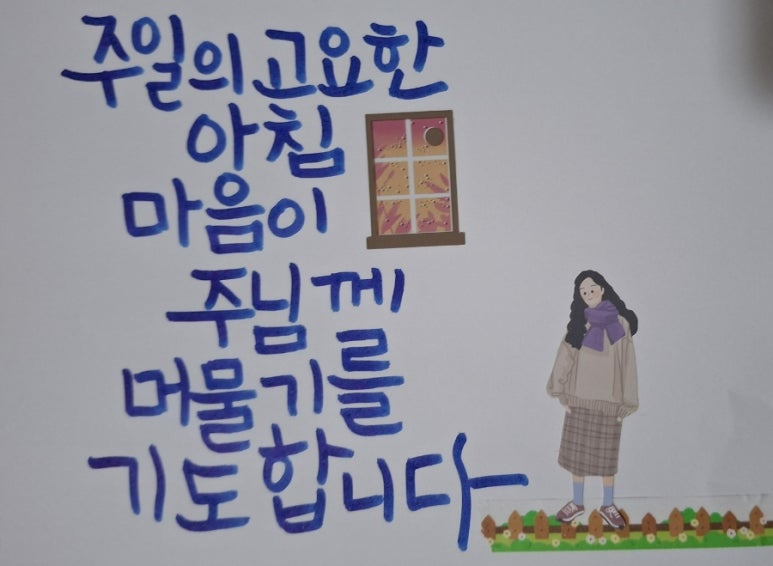 주일의 고요한
아침
마음이
주님께
머물기를
기도합니다